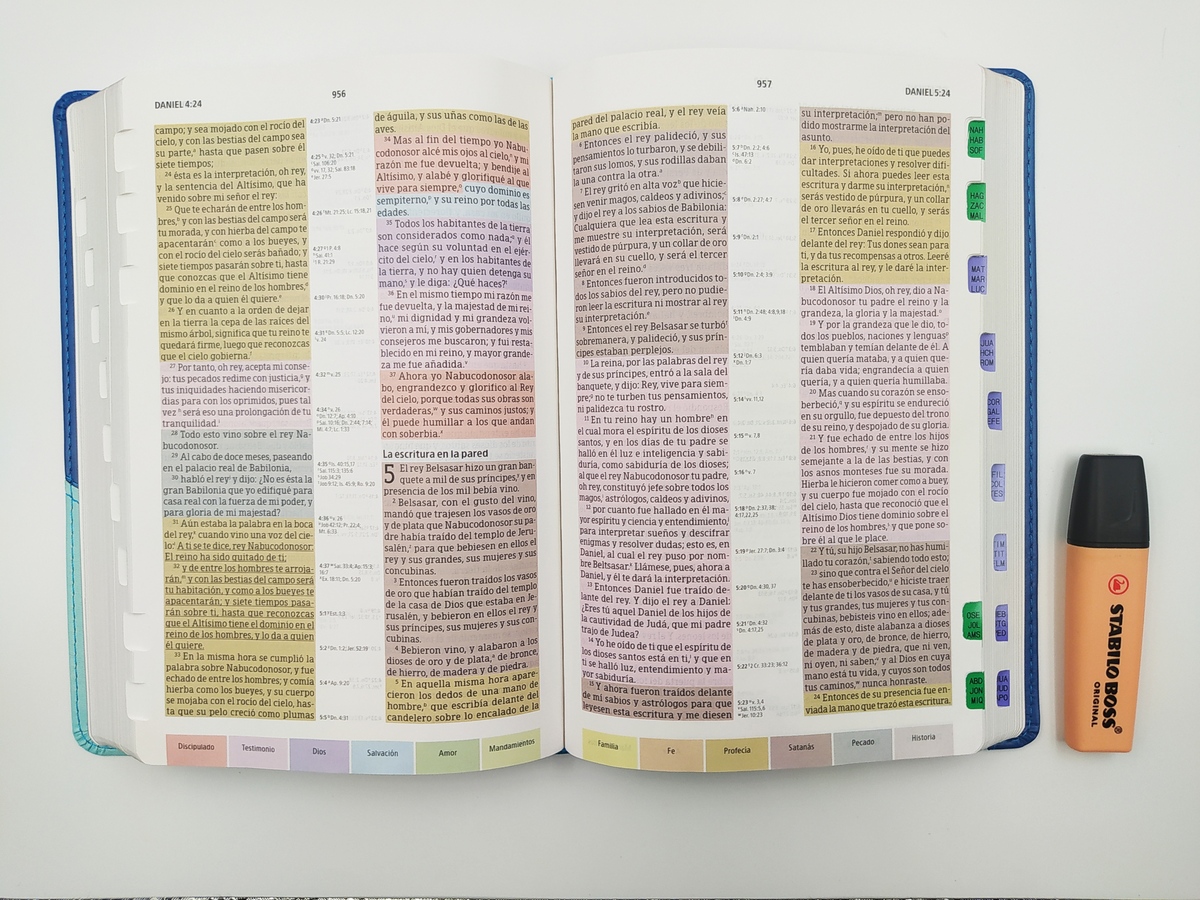 DANIEL 4:24
956
campo; y sea mojado con el rocío del
cielo, y con las bestias del campo sea
su parte, hasta que pasen sobre él
siete tiempos;
24 ésta es la interpretación, oh rey,
y la sentencia del Altísimo, que ha
venido sobre mi señor el rey:
25 Que te echarán de entre los hom-
bres, y con las bestias del campo será
tu morada, y con hierba del campo te
apacentarán como a los bueyes, y
con el rocío del cielo serás bañado; y
siete tiempos pasarán sobre ti, hasta
que conozcas que el Altísimo tiene
dominio en el reino de los hombres,
y que lo da a quien él quiere.
26 Y en cuanto a la orden de dejar
en la tierra la cepa de las raíces del
mismo árbol, significa que tu reino te
quedará firme, luego que reconozcas
que el cielo gobierna.
27 Por tanto, oh rey, acepta mi conse-
jo: tus pecados redime con justicia, y
tus iniquidades haciendo misericor-
dias para con los oprimidos, pues tal
vez será eso una prolongación de tu
tranquilidad.
28 Todo esto vino sobre el rey Na-
bucodonosor.
29 Al cabo de doce meses, paseando
en el palacio real de Babilonia,
30 habló el rey y dijo: ¿No es ésta la
gran Babilonia que yo edifiqué para
casa real con la fuerza de mi poder, y
para gloria de mi majestad?
31 Aún estaba la palabra en la boca
del rey, cuando vino una voz del cie-
lo: A ti se te dice, rey Nabucodonosor:
El reino ha sido quitado de ti;
32 y de entre los hombres te arroja-
rán, y con las bestias del campo será
tu habitación, y como a los bueyes te
apacentarán; y siete tiempos pasa-
rán sobre ti, hasta que reconozcas
que el Altísimo tiene el dominio en el
reino de los hombres, y lo da a quien
él quiere.
33 En la misma hora se cumplió la
palabra sobre Nabucodonosor, y fue
echado de entre los hombres; y comía
hierba como los bueyes, y su cuerpo
se mojaba con el rocío del cielo, has-
ta que su pelo creció como plumas
de águila, y sus uñas como las de las
aves.
34 Mas al fin del tiempo yo Nabu-
codonosor alcé mis ojos al cielo, y mi
razón me fue devuelta; y bendije al
Altísimo, y alabé y glorifiqué al que
vive para siempre, cuyo dominio es
sempiterno, y su reino por todas las
edades.
35 Todos los habitantes de la tierra
son considerados como nada; y él
hace según su voluntad en el ejér-
cito del cielo, y en los habitantes de
la tierra, y no hay quien detenga su
mano, y le diga: ¿Qué haces?
36 En el mismo tiempo mi razón me
fue devuelta, y la majestad de mi rei-
no, mi dignidad y mi grandeza vol-
vieron a mí, y mis gobernadores y mis
consejeros me buscaron; y fui resta-
blecido en mi reino, y mayor grande-
za me fue añadida.
37 Ahora yo Nabucodonosor ala-
bo, engrandezco y glorifico al Rey
del cielo, porque todas sus obras son
verdaderas, y sus caminos justos; y
él puede humillar a los que andan
con soberbia.
La escritura en la pared
5 El rey Belsasar hizo un gran ban-
quete a mil de sus príncipes, y en
presencia de los mil bebía vino.
2 Belsasar, con el gusto del vino,
mandó que trajesen los vasos de oro
y de plata que Nabucodonosor su pa-
dre había traído del templo de Jeru-
salén, para que bebiesen en ellos el
rey y sus grandes, sus mujeres y sus
concubinas.
3 Entonces fueron traídos los vasos
de oro que habían traído del templo
de la casa de Dios que estaba en Je-
rusalén, y bebieron en ellos el rey y
sus príncipes, sus mujeres y sus con-
cubinas.
4 Bebieron vino, y alabaron a los
dioses de oro y de plata, de bronce,
de hierro, de madera y de piedra.
5 En aquella misma hora apare-
cieron los dedos de una mano de
hombre, que escribía delante del
candelero sobre lo encalado de la
Discipulado
Testimonio
Dios
Salvación
Amor
Mandamientos
957
DANIEL 5:24
pared del palacio real, y el rey veía
la mano que escribía.
6 Entonces el rey palideció, y sus
pensamientos lo turbaron, y se debili-
taron sus lomos, y sus rodillas daban
la una contra la otra.
7 El rey gritó en alta voz que hicie-
sen venir magos, caldeos y adivinos;
y dijo el rey a los sabios de Babilonia:
Cualquiera que lea esta escritura y
me muestre su interpretación, será
vestido de púrpura, y un collar de oro
llevará en su cuello, y será el tercer
señor en el reino.
8 Entonces fueron introducidos to-
dos los sabios del rey, pero no pudie-
ron leer la escritura ni mostrar al rey
su interpretación.
9 Entonces el rey Belsasar se turbó
sobremanera, y palideció, y sus prín-
cipes estaban perplejos.
10 La reina, por las palabras del rey
y de sus príncipes, entró a la sala del
banquete, y dijo: Rey, vive para siem-
pre; no te turben tus pensamientos,
ni palidezca tu rostro.
11 En tu reino hay un hombre en
el cual mora el espíritu de los dioses
santos, y en los días de tu padre se
halló en él luz e inteligencia y sabi-
duría, como sabiduría de los dioses;
al que el rey Nabucodonosor tu padre,
oh rey, constituyó jefe sobre todos los
magos, astrólogos, caldeos y adivinos,
12 por cuanto fue hallado en él ma-
yor espíritu y ciencia y entendimiento,
para interpretar sueños y descifrar
enigmas y resolver dudas; esto es, en
Daniel, al cual el rey puso por nom-
bre Beltsasar. Llámese, pues, ahora a
Daniel, y él te dará la interpretación.
13 Entonces Daniel fue traído de-
lante del rey. Y dijo el rey a Daniel:
¿Eres tú aquel Daniel de los hijos de
la cautividad de Judá, que mi padre
trajo de Judea?
14 Yo he oído de ti que el espíritu de
los dioses santos está en ti, y que en
ti se halló luz, entendimiento y ma-
yor sabiduría.
15 Y ahora fueron traídos delante
de mí sabios y astrólogos para que
leyesen esta escritura y me diesen
su interpretación; pero no han po-
dido mostrarme la interpretación del
asunto.
16 Yo, pues, he oído de ti que puedes
dar interpretaciones y resolver difi-
cultades. Si ahora puedes leer esta
escritura y darme su interpretación,
serás vestido de púrpura, y un collar
de oro llevarás en tu cuello, y serás
el tercer señor en el reino.
17 Entonces Daniel respondió y dijo
delante del rey: Tus dones sean para
ti, y da tus recompensas a otros. Leeré
la escritura al rey, y le daré la inter-
pretación.
18 El Altísimo Dios, oh rey, dio a Na-
bucodonosor tu padre el reino y la
grandeza, la gloria y la majestad.
19 Y por la grandeza que le dio, to-
dos los pueblos, naciones y lenguas
temblaban y temían delante de él. A
quien quería mataba, y a quien que-
ría daba vida; engrandecía a quien
quería, y a quien quería humillaba.
20 Mas cuando su corazón se enso-
berbeció, y su espíritu se endureció
en su orgullo, fue depuesto del trono
de su reino, y despojado de su gloria.
21 Y fue echado de entre los hijos
de los hombres, y su mente se hizo
semejante a la de las bestias, y con
los asnos monteses fue su morada.
Hierba le hicieron comer como a buey,
y su cuerpo fue mojado con el rocío
del cielo, hasta que reconoció que el
Altísimo Dios tiene dominio sobre el
reino de los hombres, y que pone so-
bre él al que le place.
22 Y tú, su hijo Belsasar, no has humi-
llado tu corazón, sabiendo todo esto;
23 sino que contra el Señor del cielo
te has ensoberbecido, e hiciste traer
delante de ti los vasos de su casa, y tú
y tus grandes, tus mujeres y tus con-
cubinas, bebisteis vino en ellos; ade-
más de esto, diste alabanza a dioses
de plata y oro, de bronce, de hierro,
de madera y de piedra, que ni ven,
ni oyen, ni saben; y al Dios en cuya
mano está tu vida, y cuyos son todos
tus caminos, nunca honraste.
24 Entonces de su presencia fue en-
viada la mano que trazó esta escritura.
Familia
Fe
Profecía
Satanás
Pecado
Historia
NAH
HAB
SOF
HAG
ZAC
MAL
MAT
MAR
LUC
JUA
HCH
ROM
COR
GAL
EFE
FIL
COL
TES
TIM
TIT
FLM
OSE
JOL
AMS
ABD
JON
MIQ
STABILO BOSS
ORIGINAL